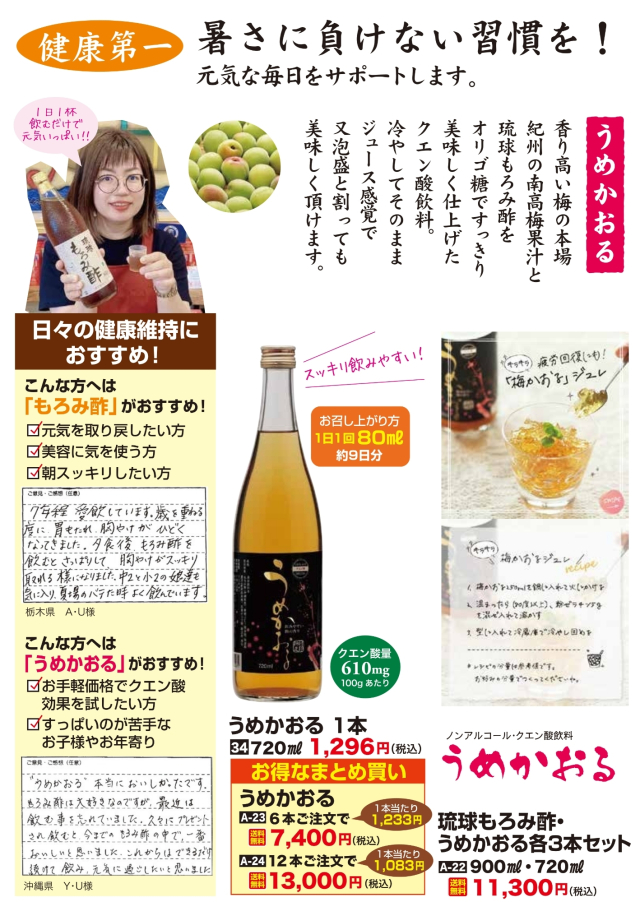 健康第一
暑さに負けない習慣を！
元気な毎日をサポートします。
1日1杯
飲むだけで
元気いっぱい!!
琉球
もろみ酢
うめかおる
香り高い梅の本場
紀州の南高梅果汁と
琉球もろみ酢を
オリゴ糖ですっきり
美味しく仕上げた
クエン酸飲料。
冷やしてそのまま
ジュース感覚で
又泡盛と割っても
美味しく頂けます。
日々の健康維持に
おすすめ！
こんな方へは
「もろみ酢」がおすすめ！
元気を取り戻したい方
美容に気を使う方
朝スッキリしたい方
ご意見・ご感想（任意）
7年程 愛飲しています。歳を重ねる
度に 胃もたれ、胸やけが ひどく
なってきました。夕食後 もろみ酢を
飲むと さっぱりして 胸やけがスッキリ
取れる様になりました。中2と小2の娘達も
気に入り、夏場のバテた時よく飲んでいます。
栃木県 A・U様
こんな方へは
「うめかおる」がおすすめ！
お手軽価格でクエン酸
効果を試したい方
すっぱいのが苦手な
お子様やお年寄り
ご意見・ご感想（任意）
"うめかおる" 本当においしかったです。
もろみ酢は大好きなのですが、最近は
飲む事を忘れていました。久々にプレゼント
され飲むと、今までのもろみ酢の中で、一番
おいしいと思いました。これからはできるだけ
続けて飲み、元気に過ごしたいと思いました
沖縄県 Y・U様
スッキリ飲みやすい！
お召し上がり方
1日1回80㎖
約9日分
うめかおる
720ml
クエン酸量
610mg
100gあたり
サッパリ 疲労回復にも！
「梅かおる」ジュレ
サッパリ
梅かおるジュレ
recipe
うめかおる 1本
34 720㎖ 1,296円（税込）
お得なまとめ買い
うめかおる
A-23 6本ご注文で
1本当たり
1,233円
送料無料 7,400円（税込）
A-24 12本ご注文で
1本当たり
1,083円
送料無料 13,000円（税込）
ノンアルコール・クエン酸飲料
うめかおる
琉球もろみ酢・
うめかおる各3本セット
A-22 900㎖・720㎖
送料無料 11,300円（税込）